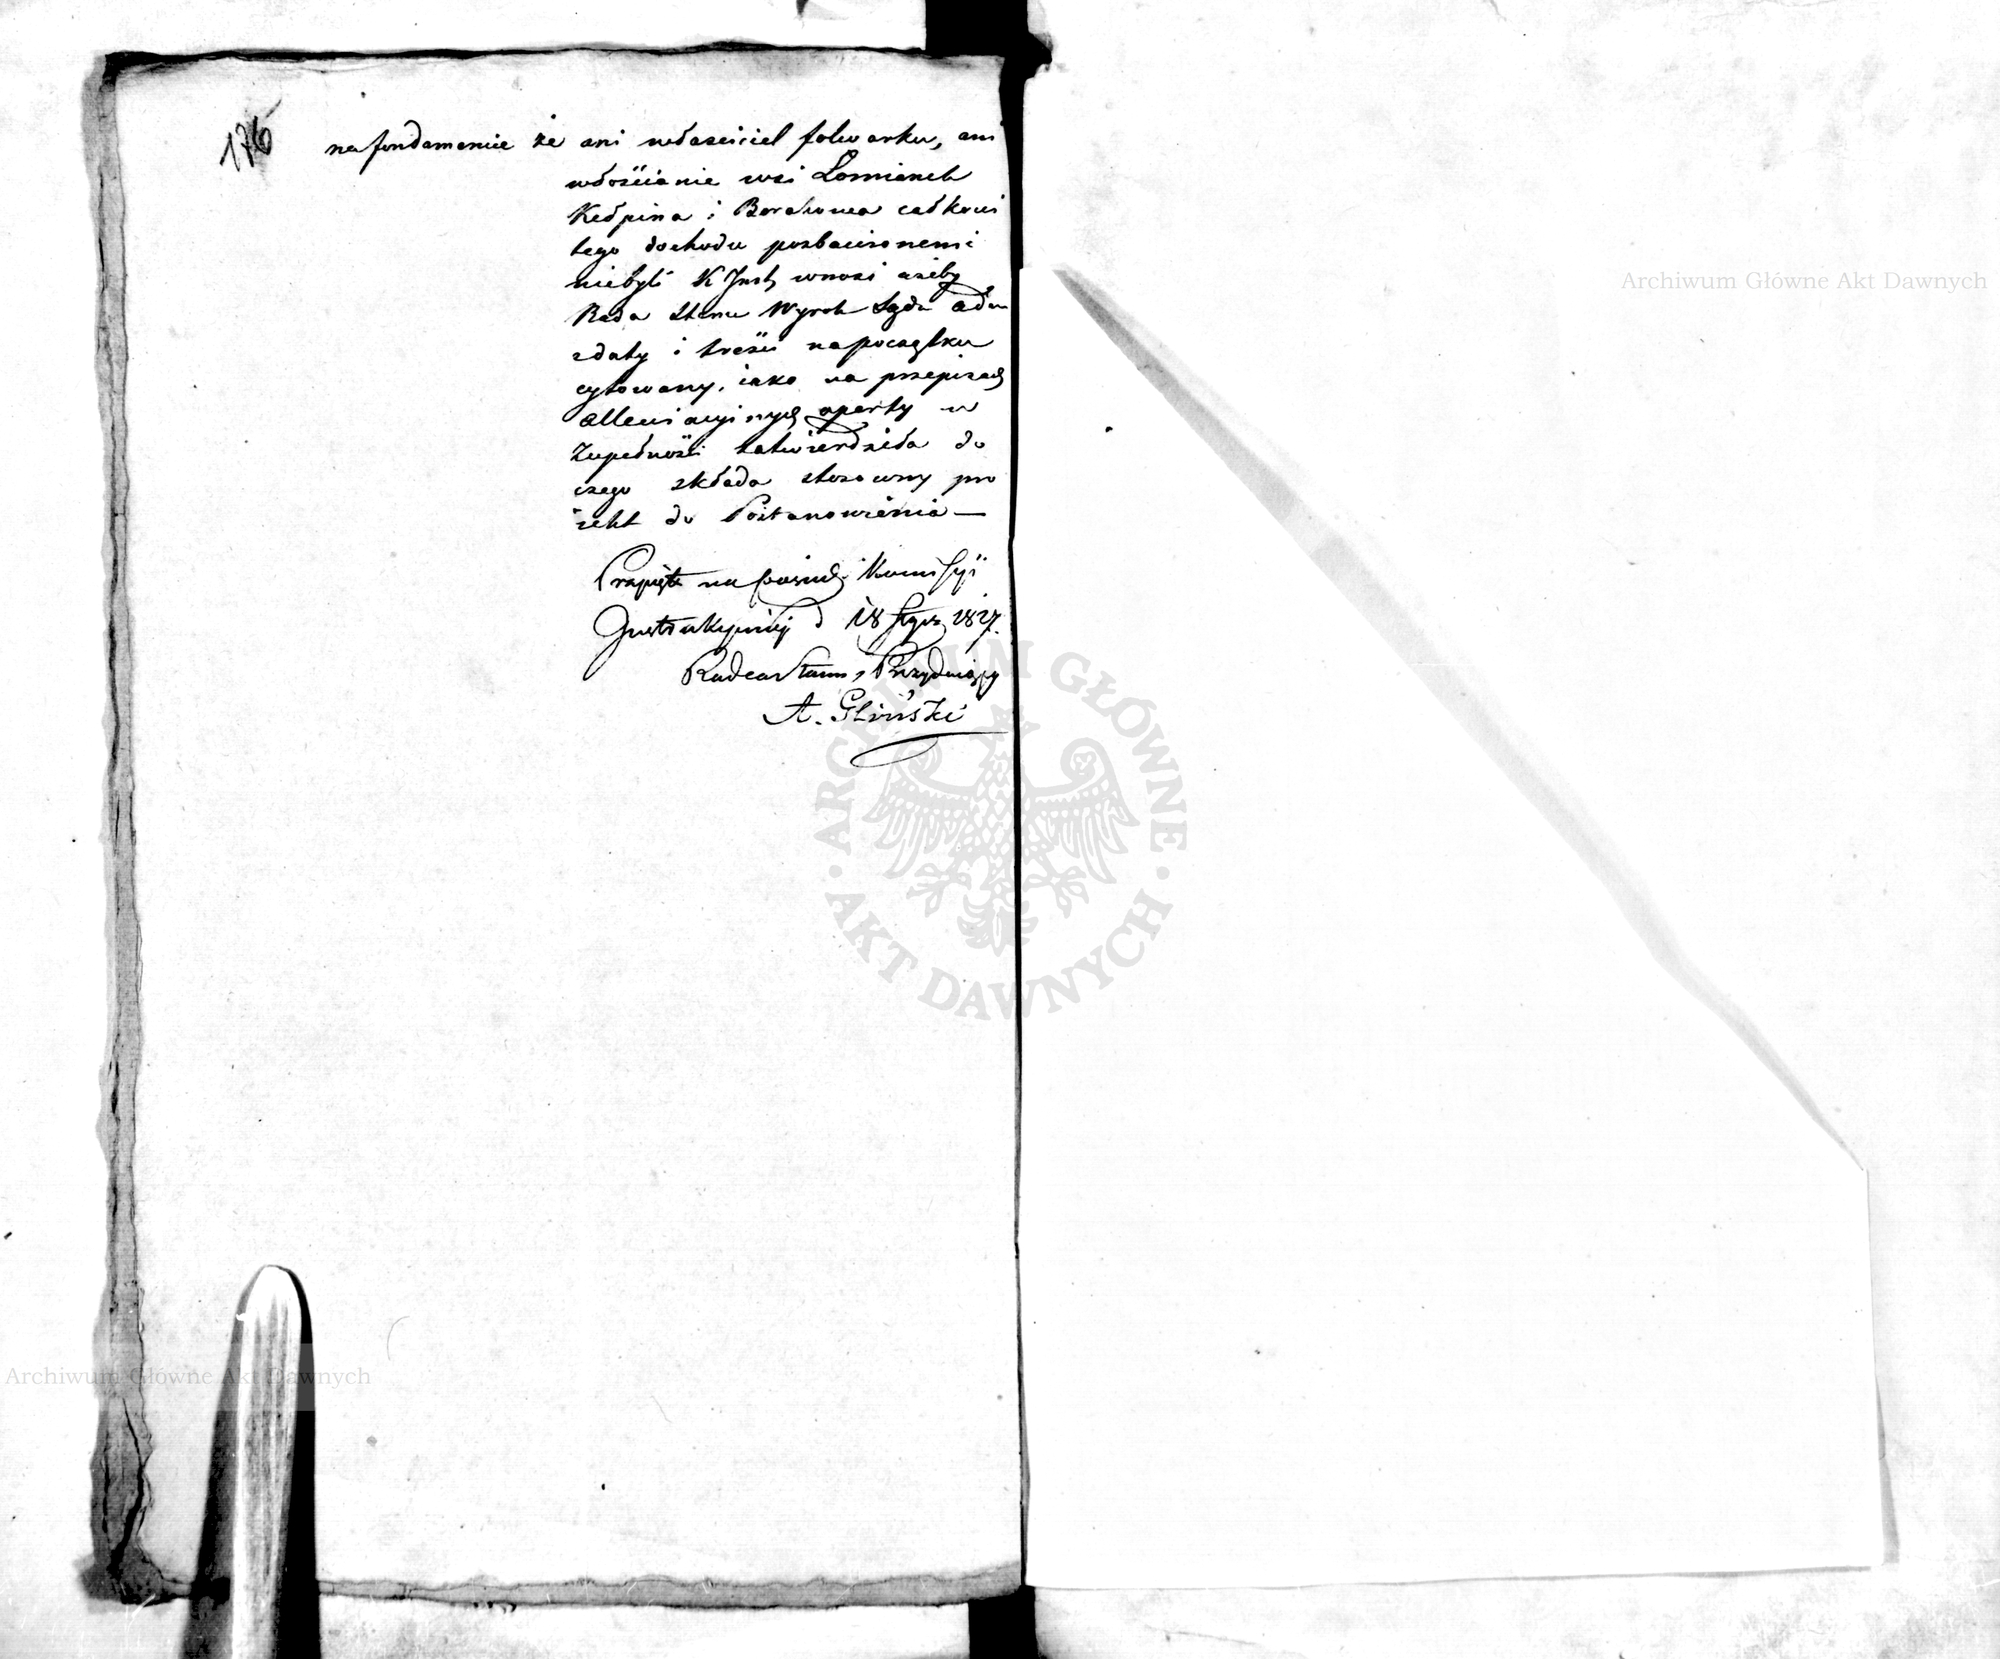 176
na fundamencie że ani właściciel folwarku, ani
włościanie wsi Łomianek
Kiełpina i Burakowa całkowi
tego dochodu pozbawionemi
niebyli K Inst wnosi ażeby
Rada Stanu Wyrok Sądu Adm
z daty i treści na początku
cytowany, iako na przepisach
allewiacyinych oparty w
Zupełności zatwierdziła do
czego składa stosowny pro
iekt do Postanowienia —
na Komissyi
Instrukcyiney d 18 Stycz 1827.
Radca Stanu Prezyduiący
A. Gliński
Archiwum Główne Akt Dawnych
ARCHIWUM GŁÓWNE · AKT DAWNYCH ·
Archiwum Główne Akt Dawnych